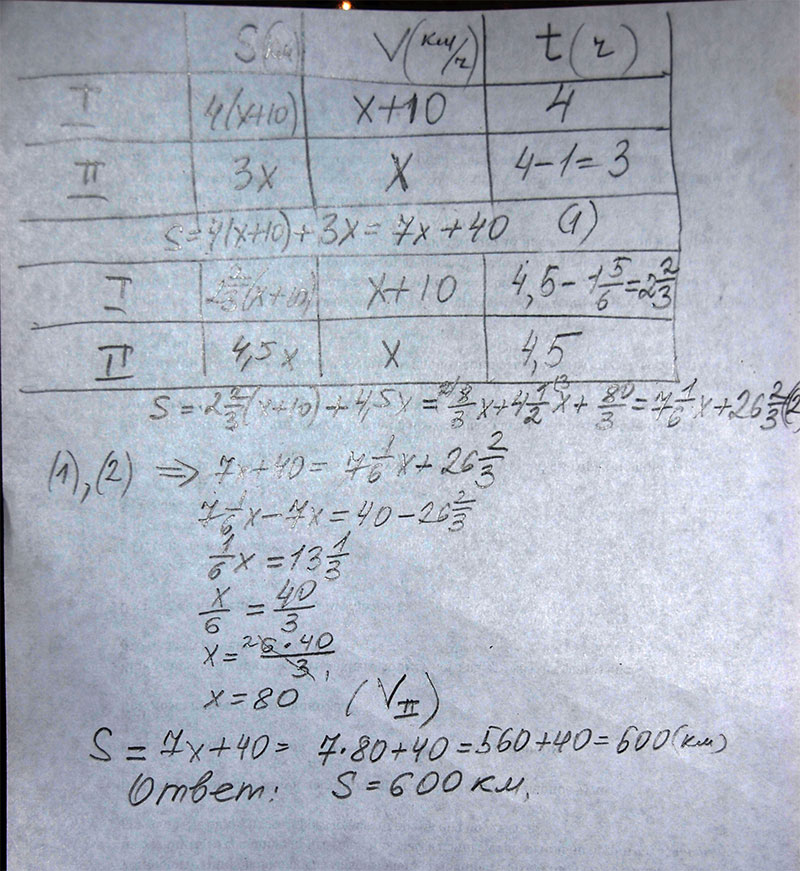 S(км) V(км/ч) t(ч)
I 4(x+10) x+10 4
II 3x x 4-1=3
S=4(x+10)+3x=7x+40 (1)
I 2 2/3(x+10) x+10 4,5-1 5/6=2 2/3
II 4,5x x 4,5
S=2 2/3(x+10)+4,5x=8/3x+4 1/2x+80/3=7 1/6x+26 2/3(2)
(1),(2) ⇒ 7x+40=7 1/6x+26 2/3
7 1/6x-7x=40-26 2/3
1/6x=13 1/3
x/6=40/3
x=6·40/3
x=80 (V II)
S=7x+40=7·80+40=560+40=600(км)
Ответ: S=600км.